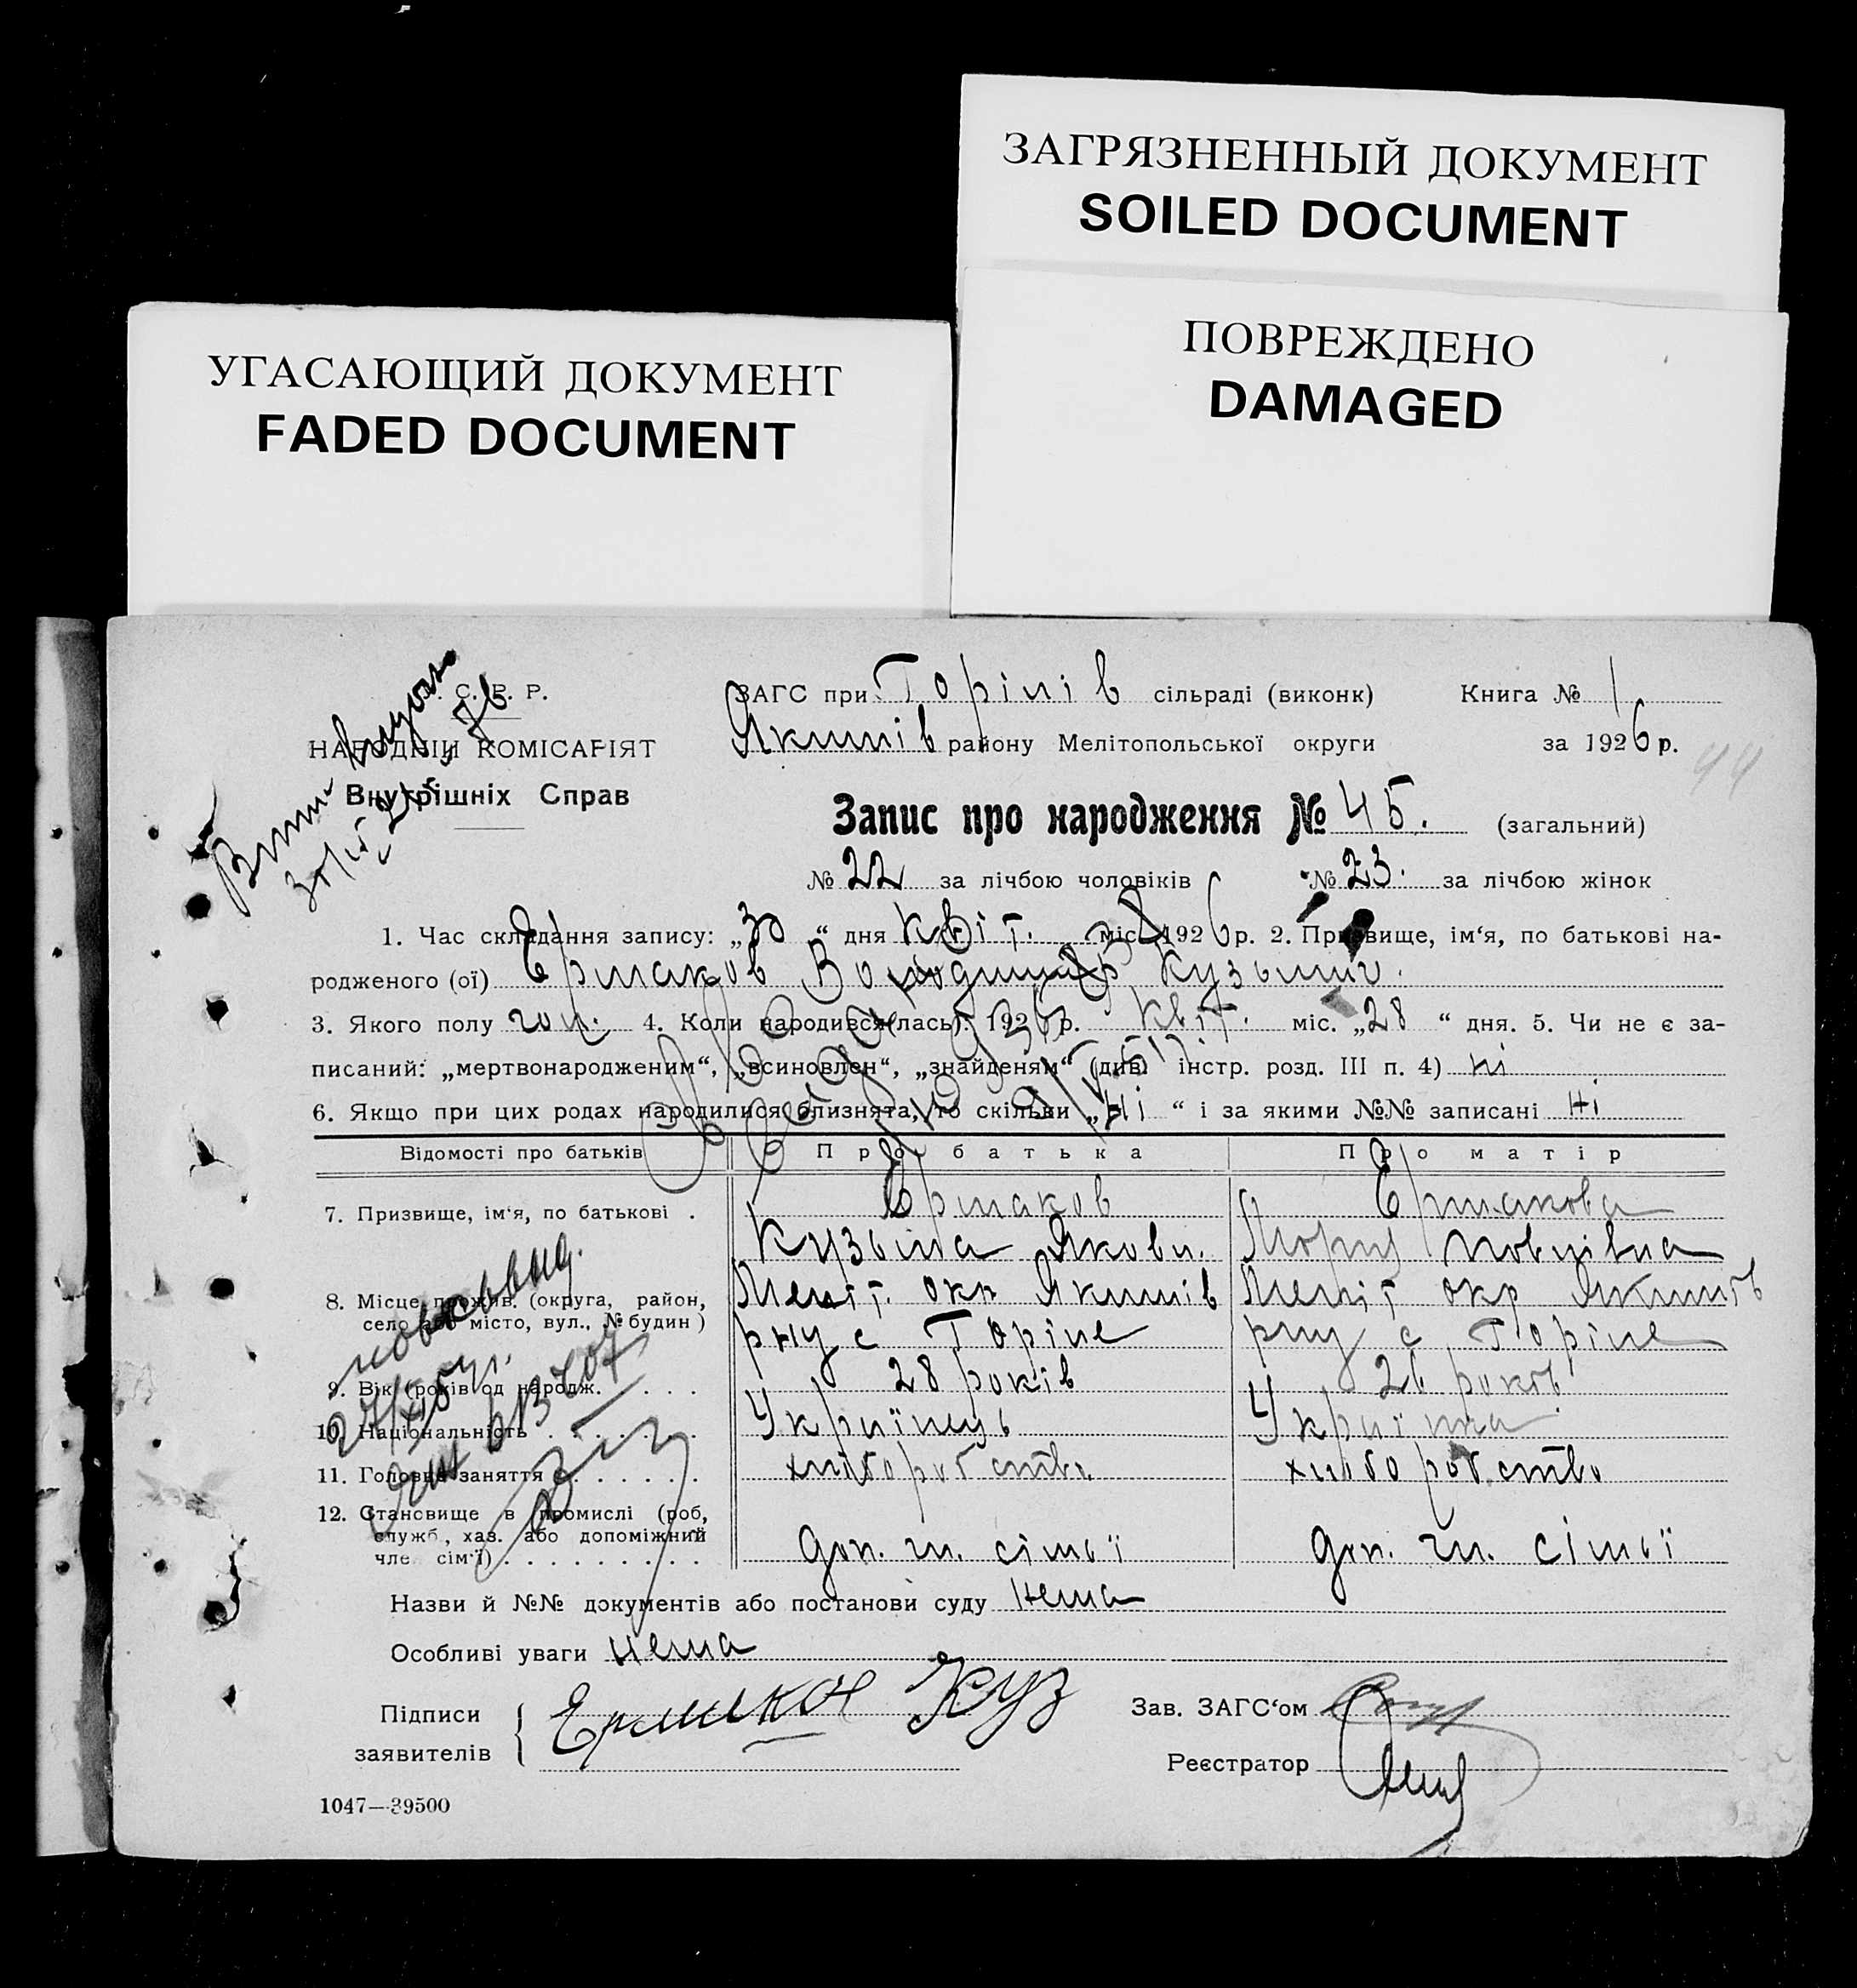 ЗАГРЯЗНЕННЫЙ ДОКУМЕНТ
SOILED DOCUMENT
ПОВРЕЖДЕНО
DAMAGED
УГАСАЮЩИЙ ДОКУМЕНТ
FADED DOCUMENT
С. Р. Р.
НАРОДНІЙ КОМІСАРІЯТ
Внутрішніх Справ
ЗАГС при Горілів сільраді (виконк) Книга № 1
Якимів району Мелітопольської округи за 1926 р.
44
Запис про народження № 45. (загальний)
№ 22 за лічбою чоловіків № 23. за лічбою жінок
1. Час складання запису: „30“ дня квіт. міс. 1926 р. 2. Призвище, ім‘я, по батькові на-
родженого (ої) Ермаков Володимир Кузьмич.
3. Якого полу чол. 4. Коли народився(лась): 1926 р. квіт. міс. „28“ дня. 5. Чи не є за-
писаний: „мертвонародженим“, „всиновлен“, „знайденям“ (див. інстр. розд. III п. 4) ні
6. Якщо при цих родах народилися близнята, то скільки „ні“ і за якими №№ записані ні
Відомості про батьків Про батька Про матір
7. Призвище, ім‘я, по батькові . Ермаков Ермакова
Кузьма Якови.
8. Місце прожив. (округа, район, Меліт. окр Якимів Меліт окр Якимів
село або місто, вул., № будин) рну с Горіле рну с Горіле
9. Вік (років од народж. . . . . 28 років 26 років
10. Національність . . . . . . Українець Українка
11. Головне заняття . . . . . . хліборобство хліборобство
12. Становище в промислі (роб,
служб, хаз. або допоміжний доп. чл. сімьї доп. чл. сімьї
чле сім‘ї) . . . . . . . . .
Назви й №№ документів або постанови суду нема
Особливі уваги нема
Підписи Ермаков Куз Зав. ЗАГС‘ом
заявителів Реєстратор
1047—39500